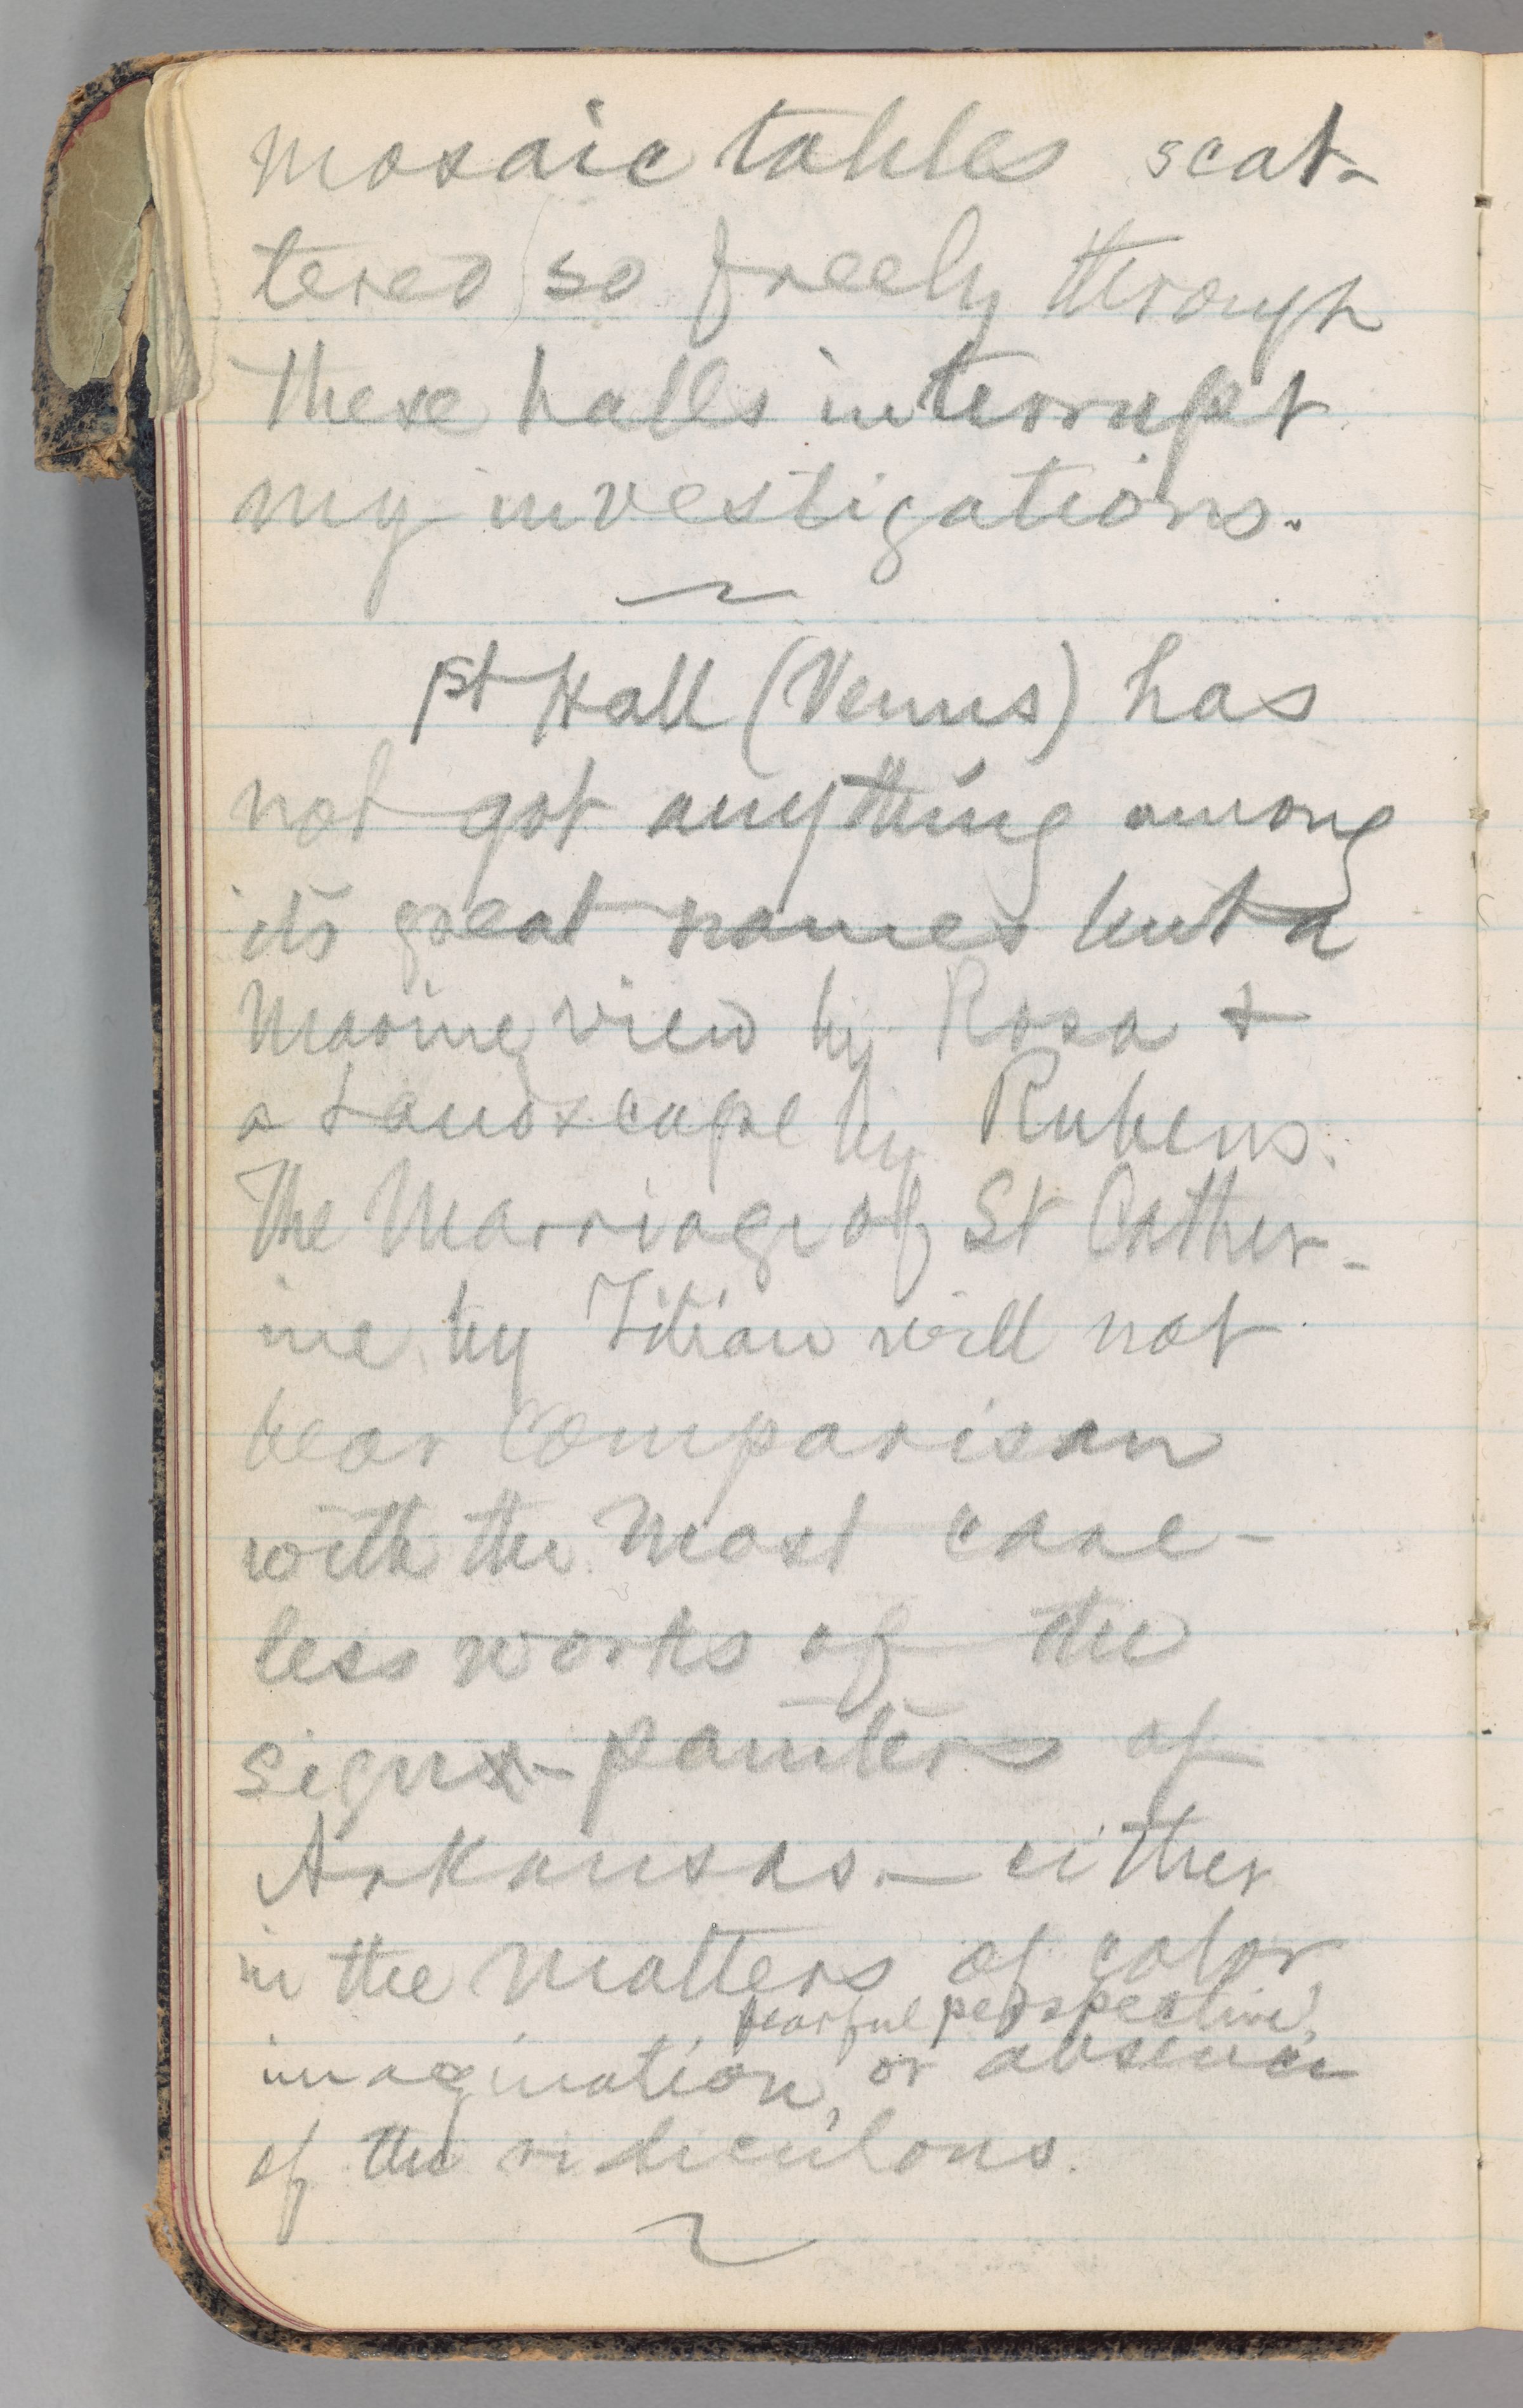 mosaic tables scat-
tered so freely through
these halls interrupt
my investigations.
1st Hall (Venus) has
not got anything among
its great names but a
Marine view by Rosa &
a Landscape by Rubens.
The Marriage of St Cather-
ine by Titian will not
bear comparison
with the most care-
less works of the
sign-painters of
Arkansas—either
in the matters of color
fearful perspective,
imagination, or absence
of the ridiculous.